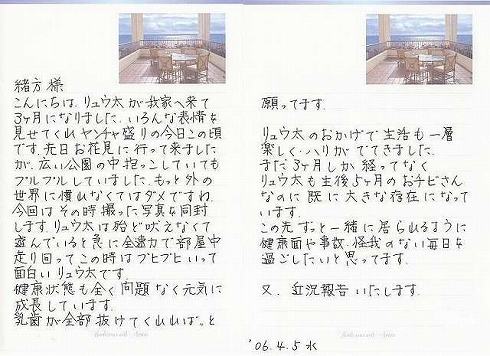 緒方様
こんにちは、リュウ太が我家へ来て
3ヶ月になりました。いろんな表情を
見せてくれ ヤンチャ盛りの今日この頃
です。先日お花見に行って来ました
が、広い公園の中抱っこしていても
ブルブルしていました。もっと外の
世界に慣れなくてはダメですね。
今回はその時撮った写真を同封
します。リュウ太は殆ど吠えなくて
遊んでいると急に全速力で部屋中
走り回ってこの時はブヒブヒいって
面白いリュウ太です。
健康状態も全く問題なく元気に
成長しています。
乳歯が全部抜けてくれれば、と
願ってます。
リュウ太のおかげで生活も一層
楽しく、ハリがでてきました。
まだ3ヶ月しか経ってなく
リュウ太も生後5ヶ月のおチビさん
なのに既に大きな存在になって
います。
この先ずっと一緒に居られるように
健康面や事故、怪我のない毎日を
過ごしたいと思ってます。
又、近況報告いたします。
'06.4.5 水